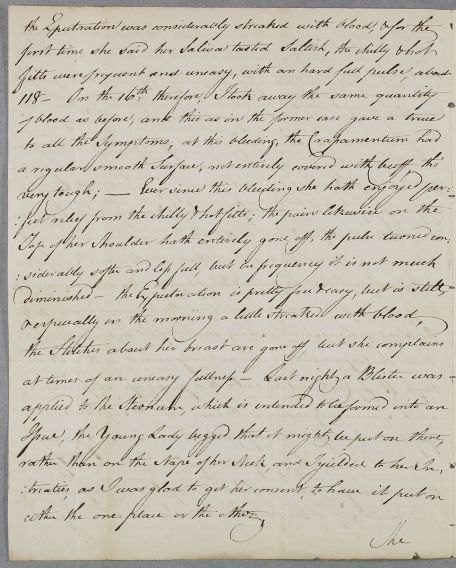 the Exputoration was considerably streaked with blood, & for the
first time she said her Saliva tasted Saltish, the chilly & hot
fitts were frequent and uneasy, with an hard full pulse, about
118 — On the 16th therefore, I took away the same quantity
of blood as before, and this as in the former case gave a truce
to all the Symptoms; at this bleeding, the Crassamentum had
a regular smooth Surface, not entirely covered with buff, tho
very tough; — Ever since this bleeding she hath enjoyed per-
:fect relief from the chilly & hot fitts; the pain likewise on the
Top of her Shoulder hath entirely gone off, the pulse turned con-
:siderably softer and less full but in frequency it is not much
diminished — the Expectoration is pretty free & easy, but is still,
& especially in the morning a little streaked with blood,
the Stitches about her breast are gone off, but she complains
at times of an uneasy fullness — Last night, a Blister was
applied to the Sternum, which is intended to be formed into an
Issue, the Young Lady begged that it might be put on there,
rather than on the Nape of her Neck, and I yielded to her In-
:treaties as I was glad to get her consent, to have it put on
either the one place or the other,
She